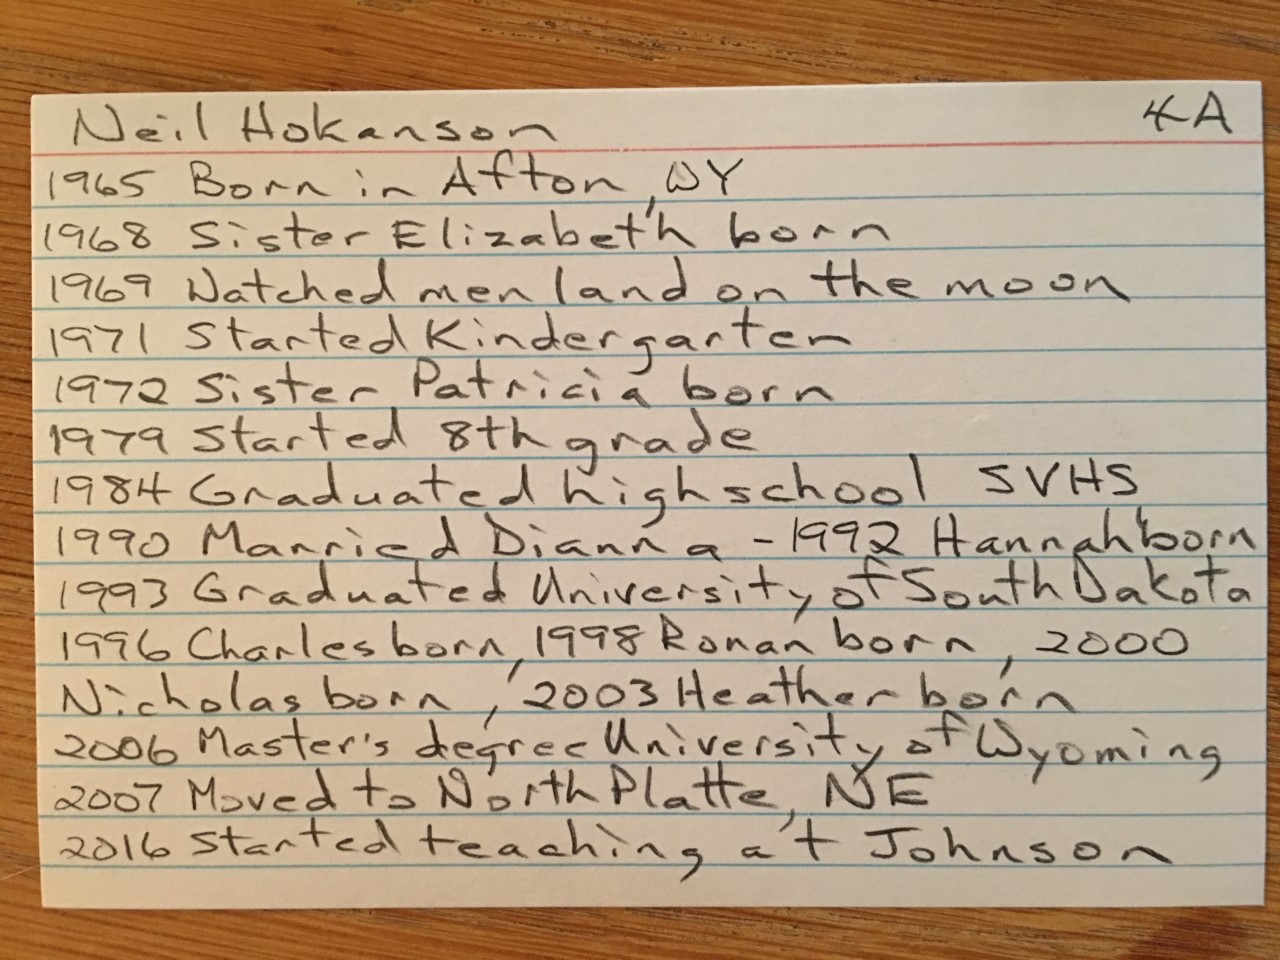 Neil Hokanson 4A
1965 Born in Afton, WY
1968 Sister Elizabeth born
1969 Watched men land on the moon
1971 Started Kindergarten
1972 Sister Patricia born
1979 Started 8th grade
1984 Graduated high school SVHS
1990 Married Dianna - 1992 Hannah born
1993 Graduated University of South Dakota
1996 Charles born, 1998 Ronan born, 2000
Nicholas born, 2003 Heather born
2006 Master's degree University of Wyoming
2007 Moved to North Platte, NE
2016 Started teaching at Johnson